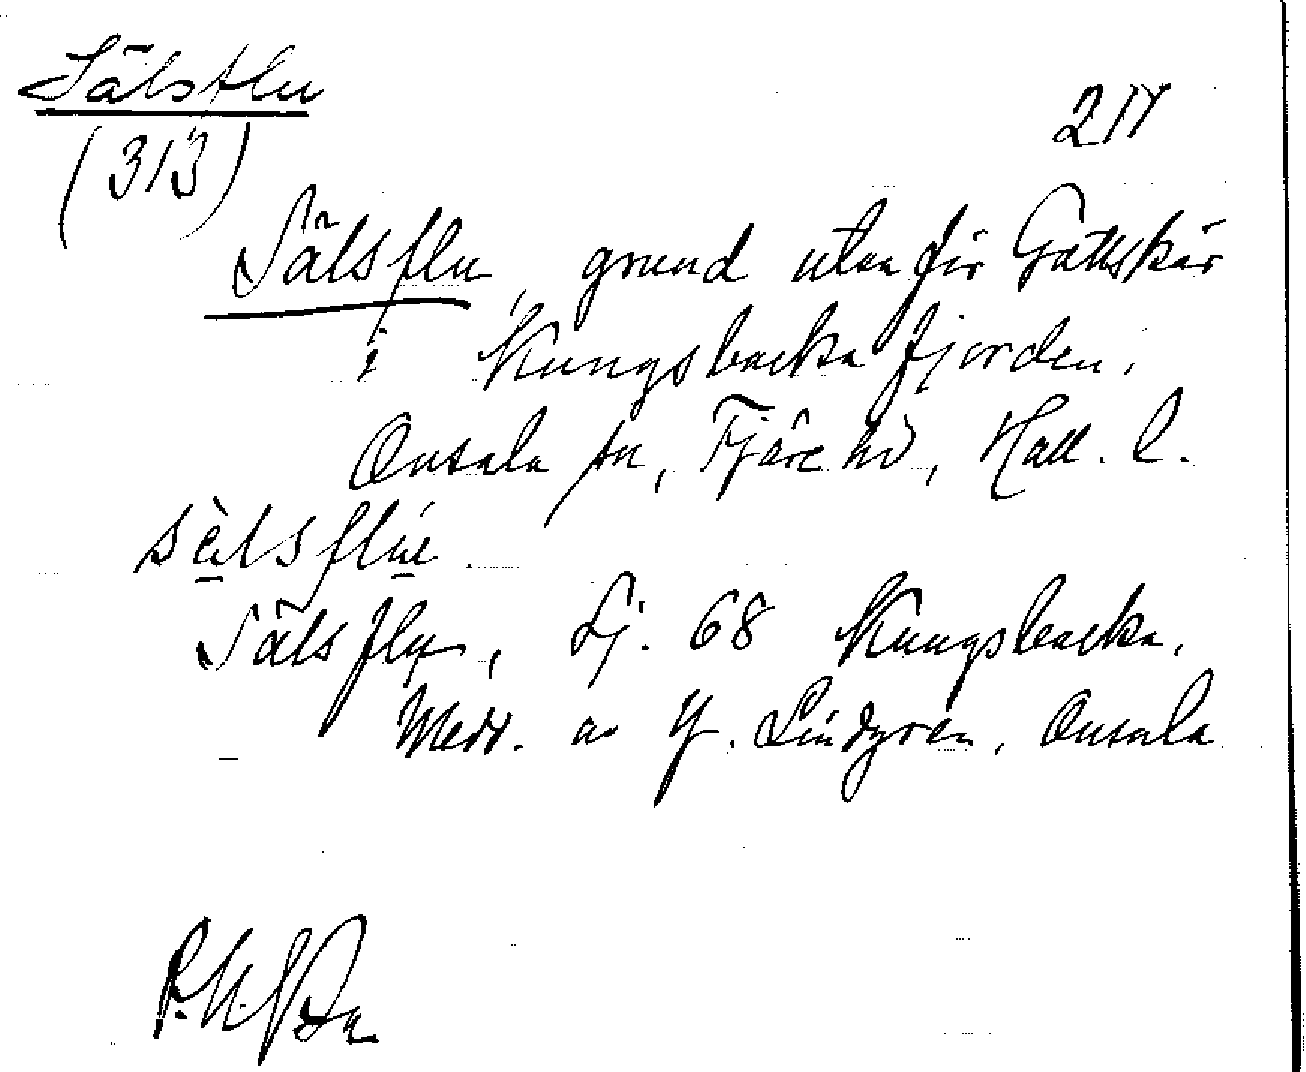 Sälsflu
217
(313)
Sälsflu, grund utanför Gottskär
i Kungsbackafjorden.
Onsala sn, Fjäre hd, Hall. l.
Sälsflu, Sj. 68 Kungsbacka.
Medd. av Y. Lindgren, Onsala